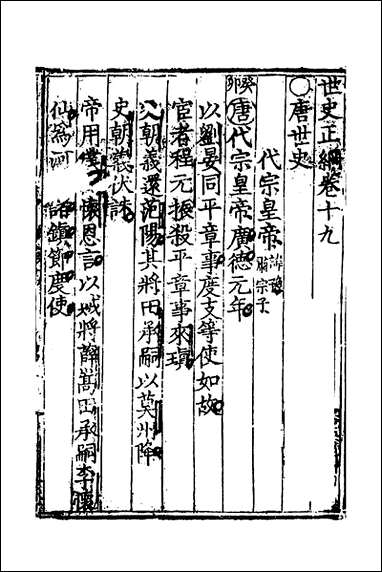 世史正綱卷十九
〇唐世史
代宗皇帝 諱豫 肅宗子
癸卯 唐代宗皇帝廣德元年
以劉晏同平章事度支等使如故
宦者程元振殺平章事來瑱
父朝義還范陽其將田承嗣以莫州降
史朝義伏誅
帝用僕 懷恩言以城將薛嵩田承嗣李懷
仙為河 諸鎮節度使